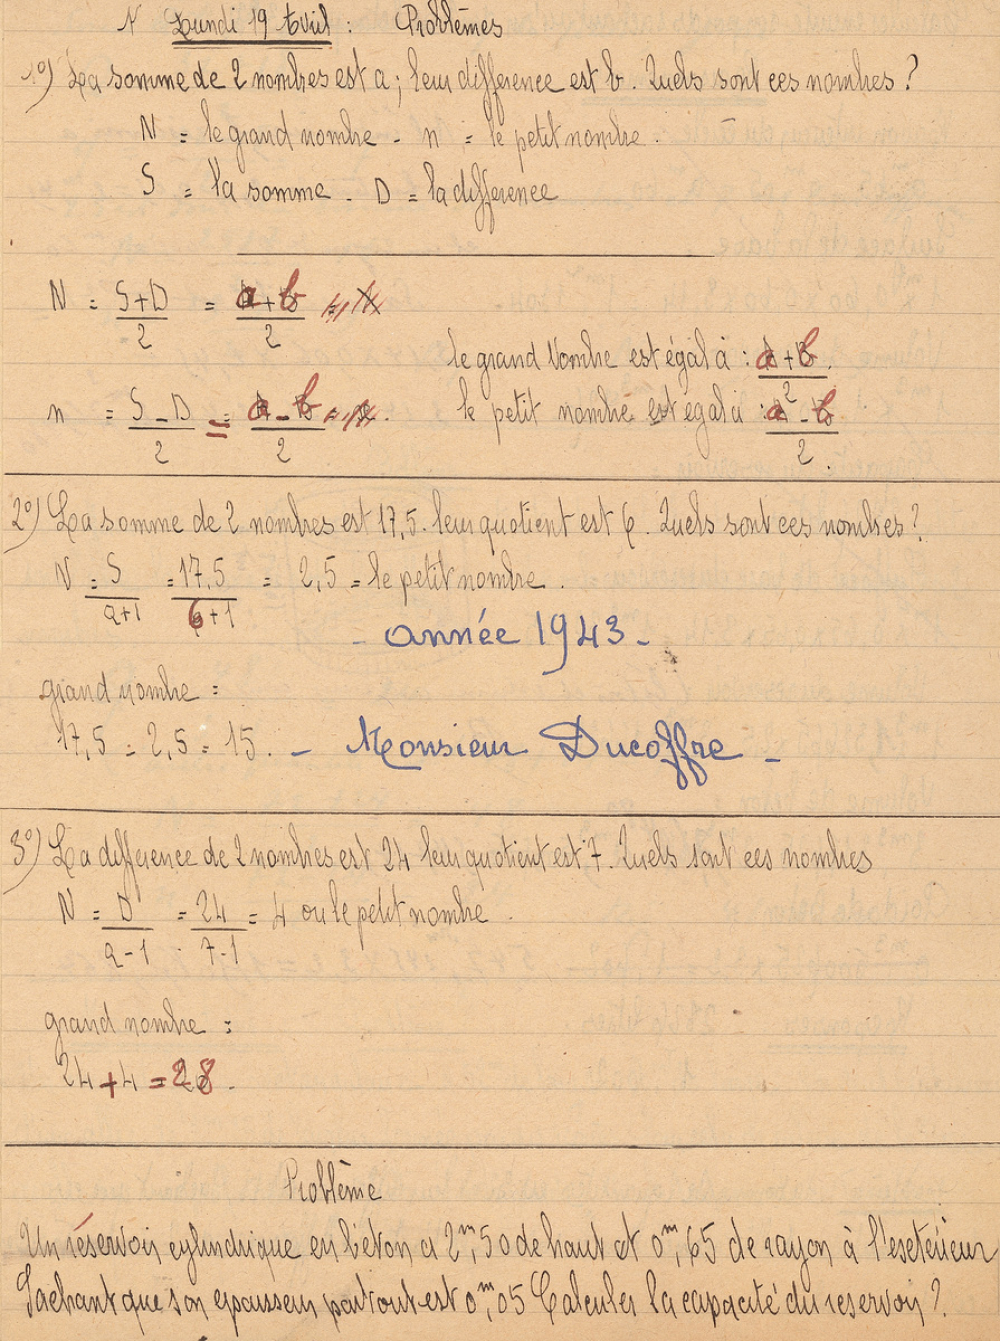 N Lundi 19 Avril : Problèmes
1°) La somme de 2 nombres est a ; leur différence est b. Quels sont ces nombres ?
N = le grand nombre - n = le petit nombre.
S = la somme. D = la différence
N = S+D/2 = a+b/2
le grand Nombre est égal à : a+b/2.
n = S-D/2 = a-b/2
le petit nombre est égal à : a-b/2.
2°) La somme de 2 nombres est 17,5. leur quotient est 6. Quels sont ces nombres ?
N = S/q+1 = 17,5/6+1 = 2,5 = le petit nombre.
- année 1943 -
grand nombre :
17,5 = 2,5 = 15.
- Monsieur Ducoffre -
3°) La différence de 2 nombres est 24 leur quotient est 7. Quels sont ces nombres
N = D/q-1 = 24/7-1 = 4 ou le petit nombre.
grand nombre :
24+4 = 28.
Problème
Un réservoir cylindrique en béton a 2m,50 de haut et 0m,65 de rayon à l'esetérieur
Sachant que son epaisseur partout est 0m,05 Calculer la capacité du reservoir ?